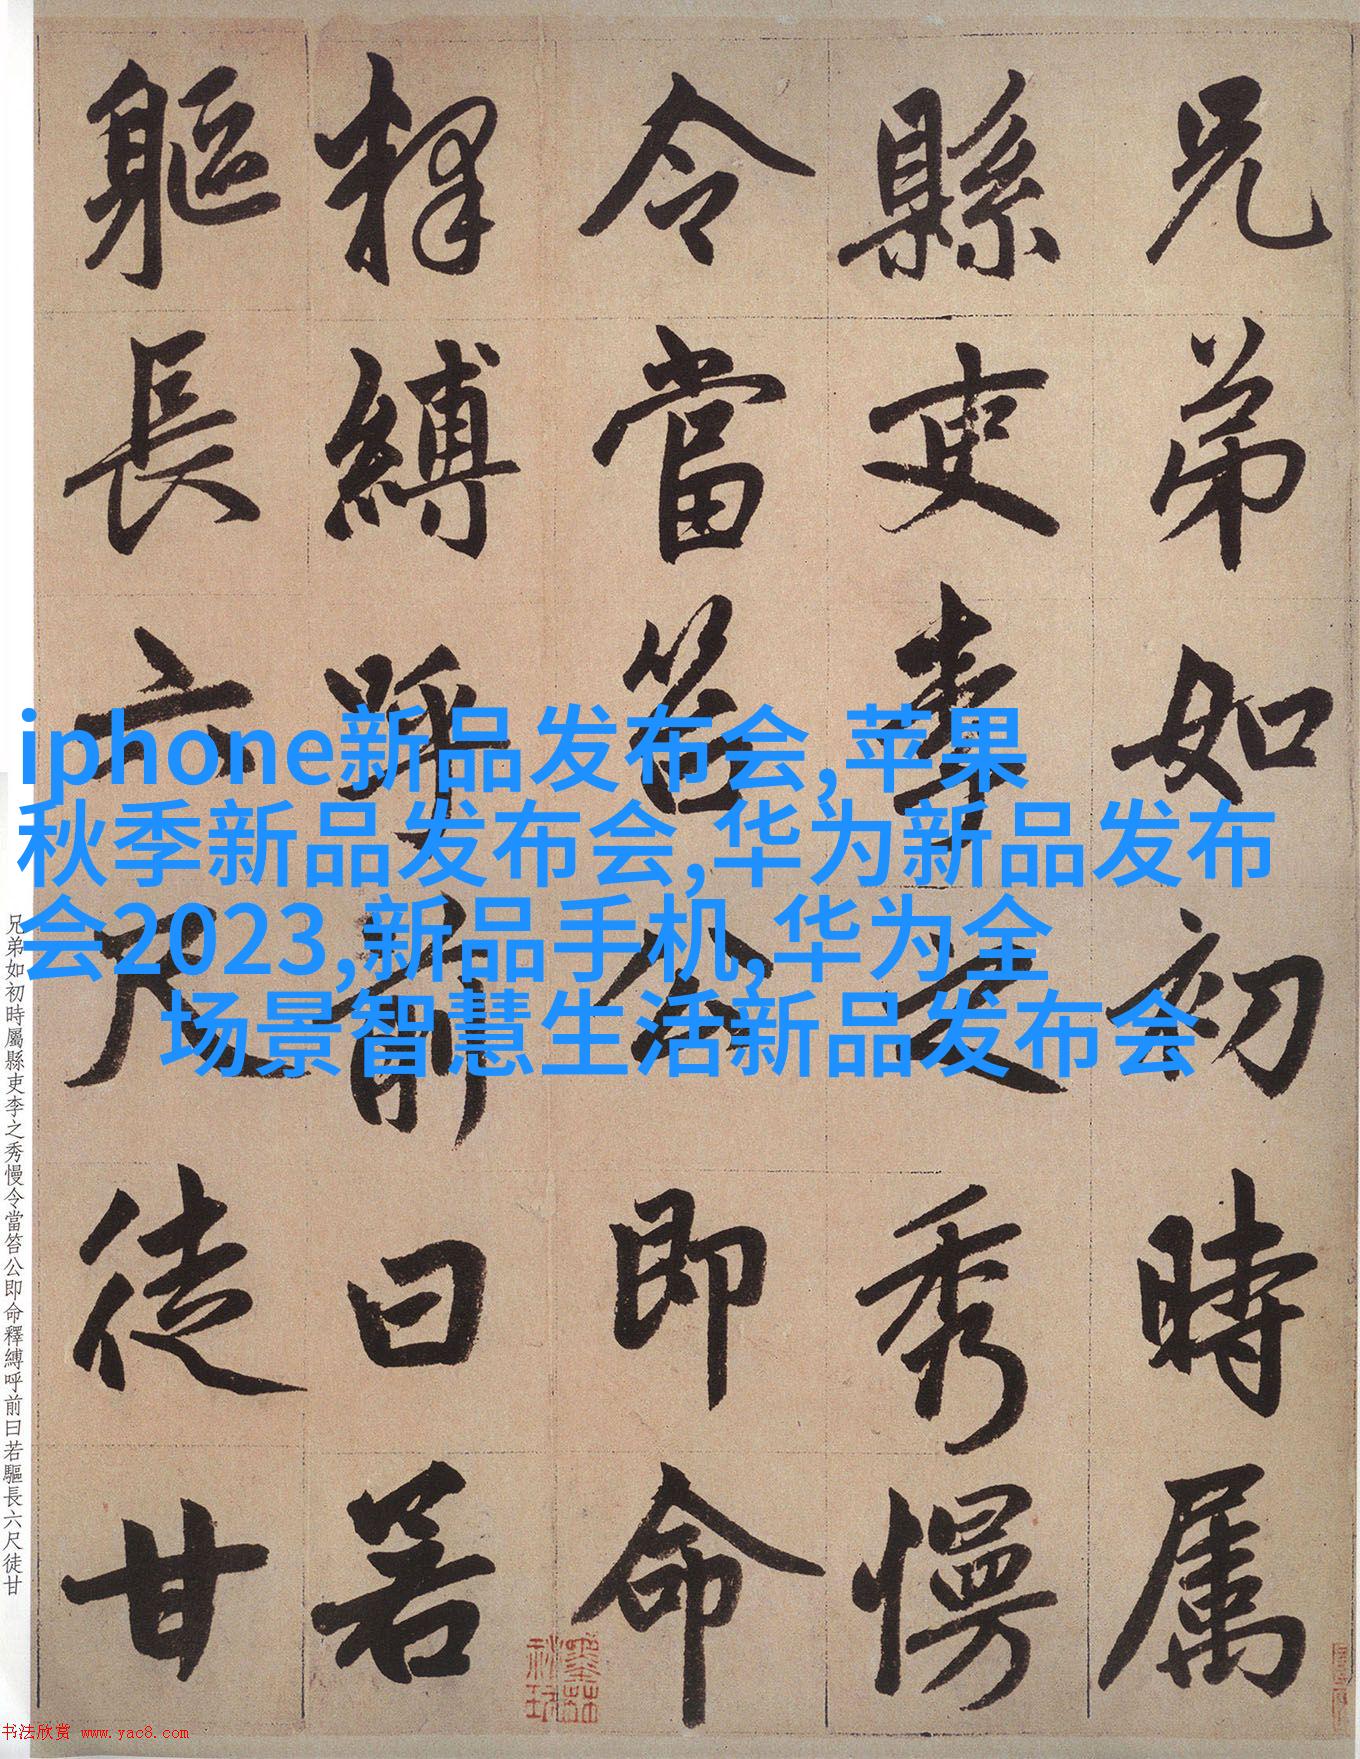 兄弟如初時属
縣吏李之秀慢
令當笞公即命
釋縛呼前曰若
軀長六尺徒甘
iphone新品发布会,苹果
秋季新品发布会,华为新品发布
会2023,新品手机,华为全
场景智慧生活新品发布会
兄弟如初時屬縣吏李之秀慢令當笞公即命釋縛呼前曰若驅長六尺徒甘
书法欣赏 www.yac8.com